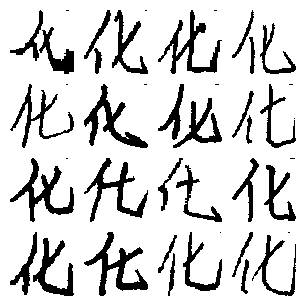 化化化化
化化化化
化化化化
化化化化